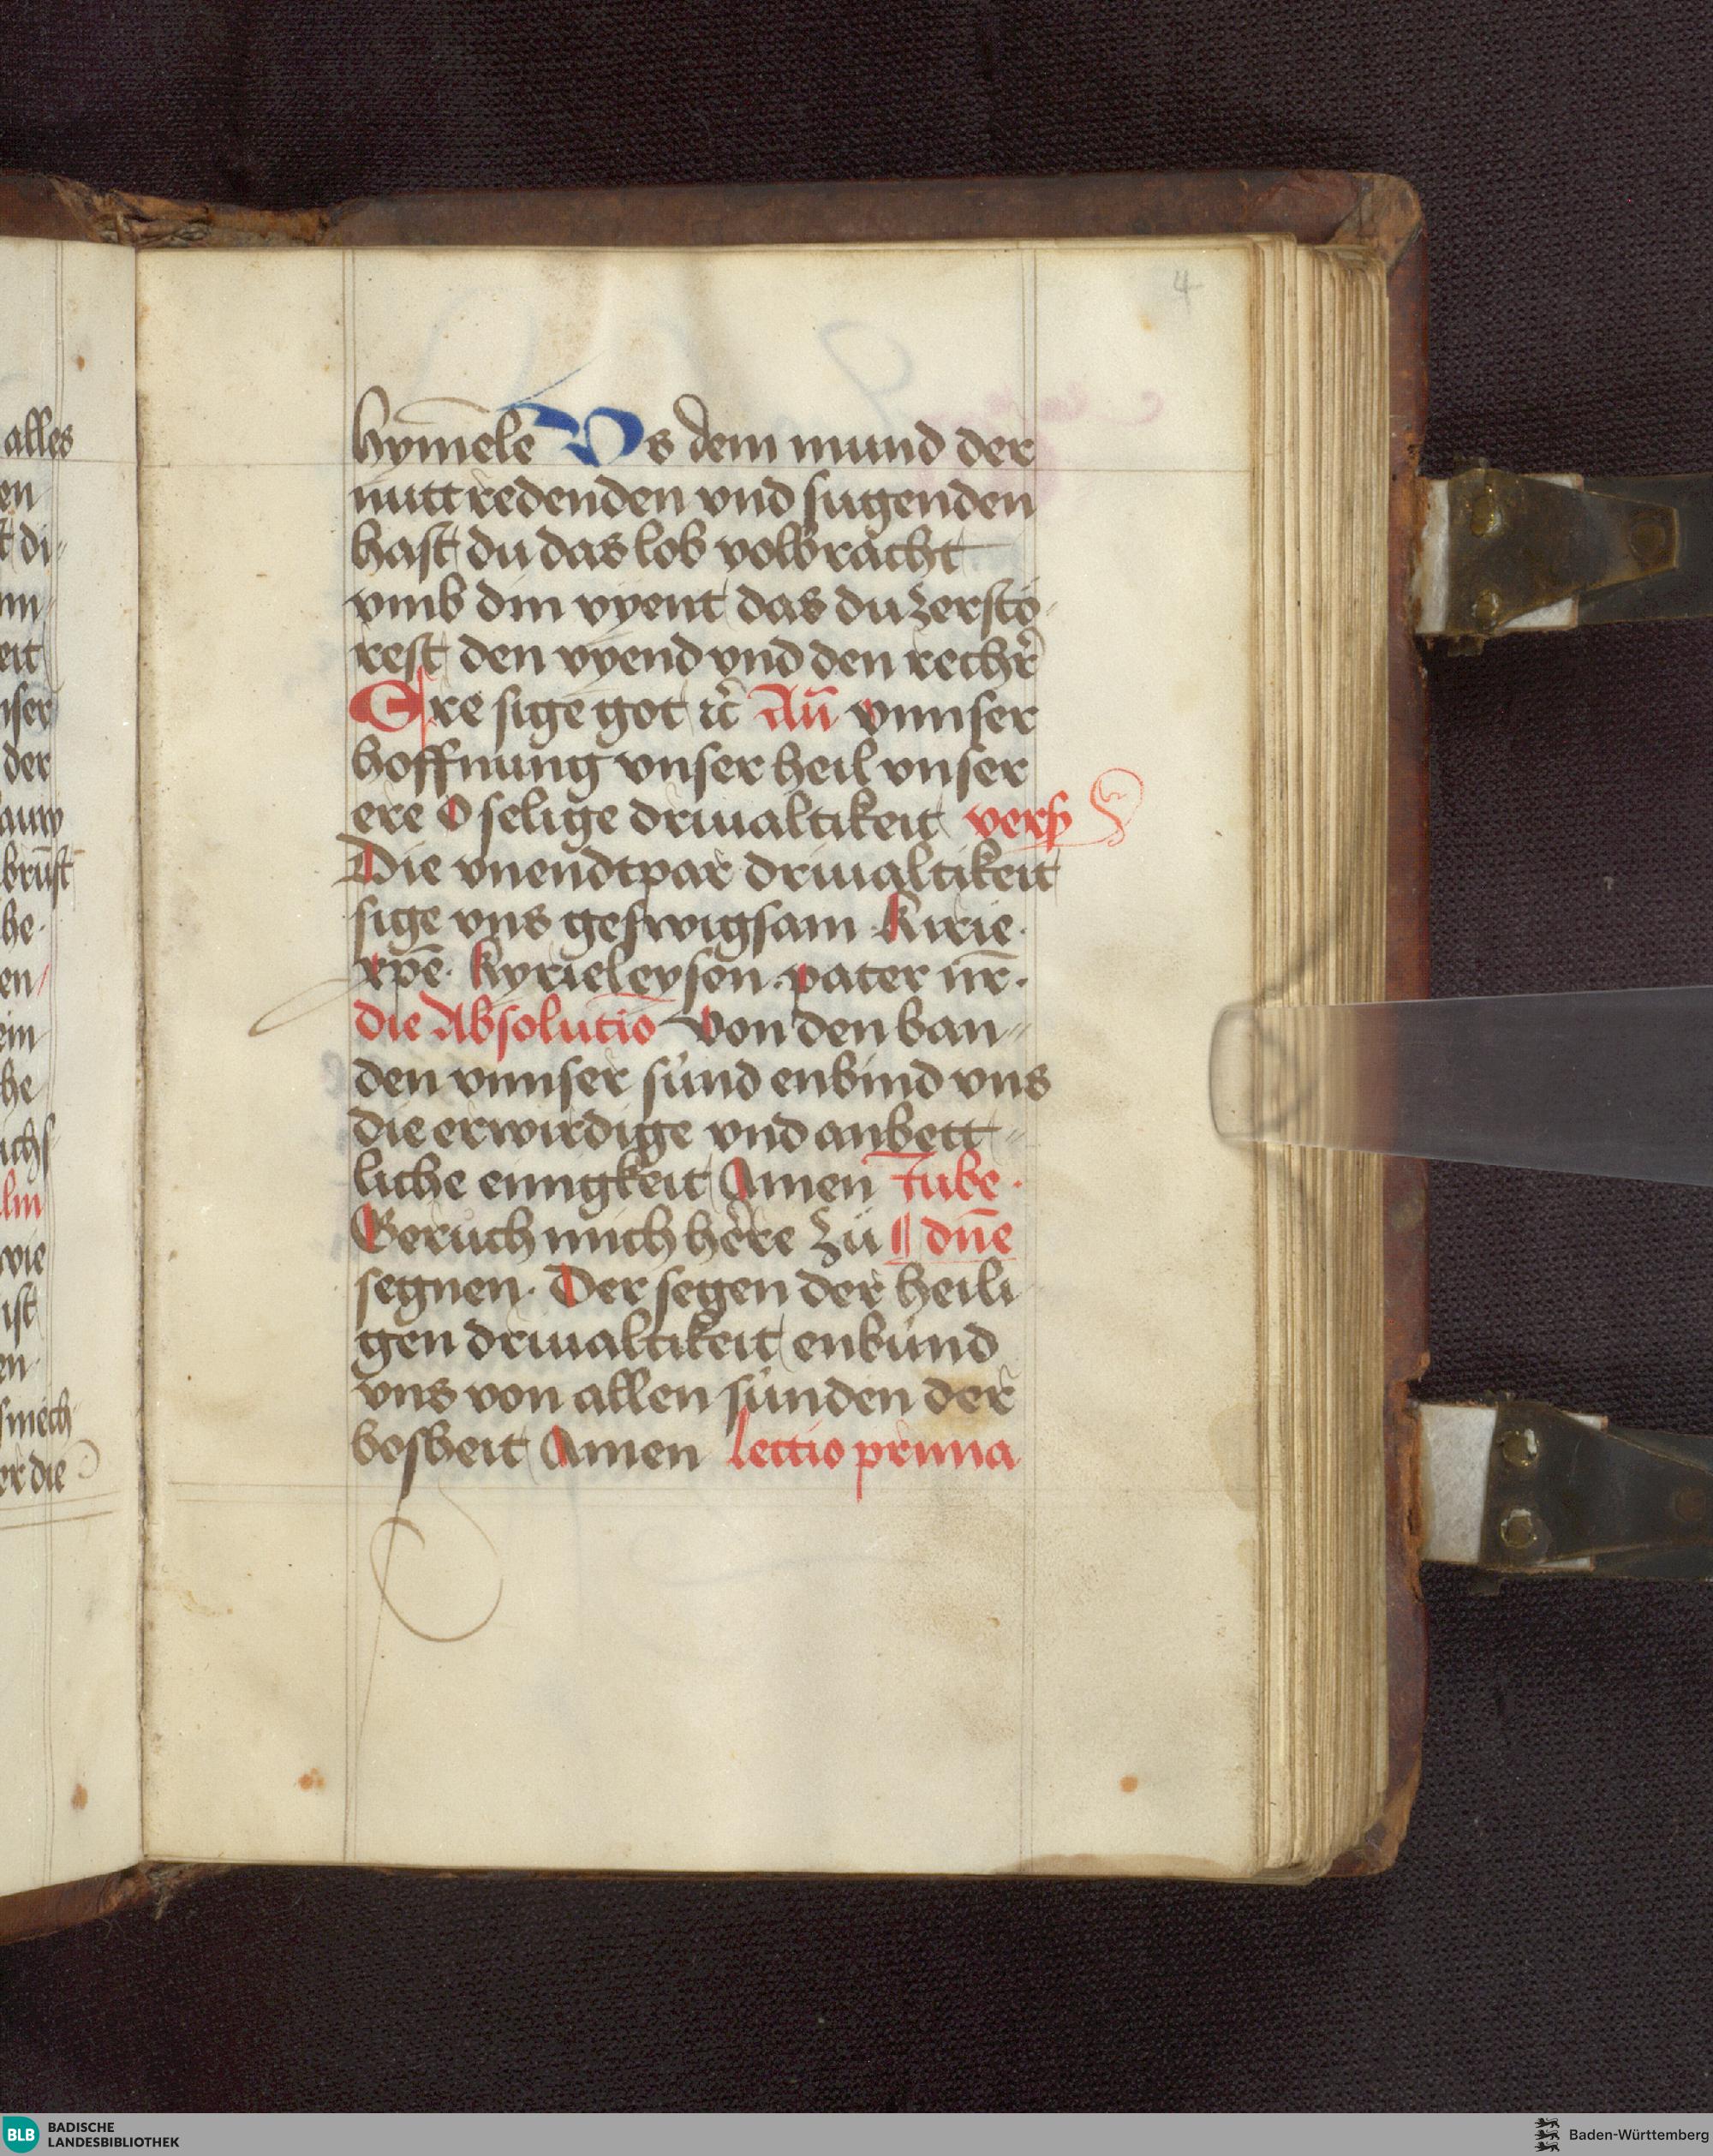 alles
en
t di-
nn
eit
nser
der
auw
brūst
he.
en
ein
he
uchs
lm
wie
ist
en.
smech
er die
4
hym̄ele Vs dem mund der
nutt redenden vnd sugenden
hast du das lob volbracht
vmb din vyent das du zerstö-
rest den vyend vnd den rechr̄
Ere sige got ꝛc̄ An̄ vnnser
hoffnung vnser heil vnser
ere O selige driualtikeit vers
Die vnendtpar driualtikeit
sige vns geswigsam Kirie.
xp̄e. kyrieleyson. pater nr̄.
die Absolucio Von den ban-
den vnnser sünd enbind vns
die erwirdige vnd anbett-
liche einigkeit Amen Jube.
Geruch mich herre zü ¶ dn̄e
segnen. Der segen der heili
gen driualtikeit enbünd
vns von allen sünden der
bosheit Amen Lectio prima
BLB BADISCHE
LANDESBIBLIOTHEK
Baden-Württemberg